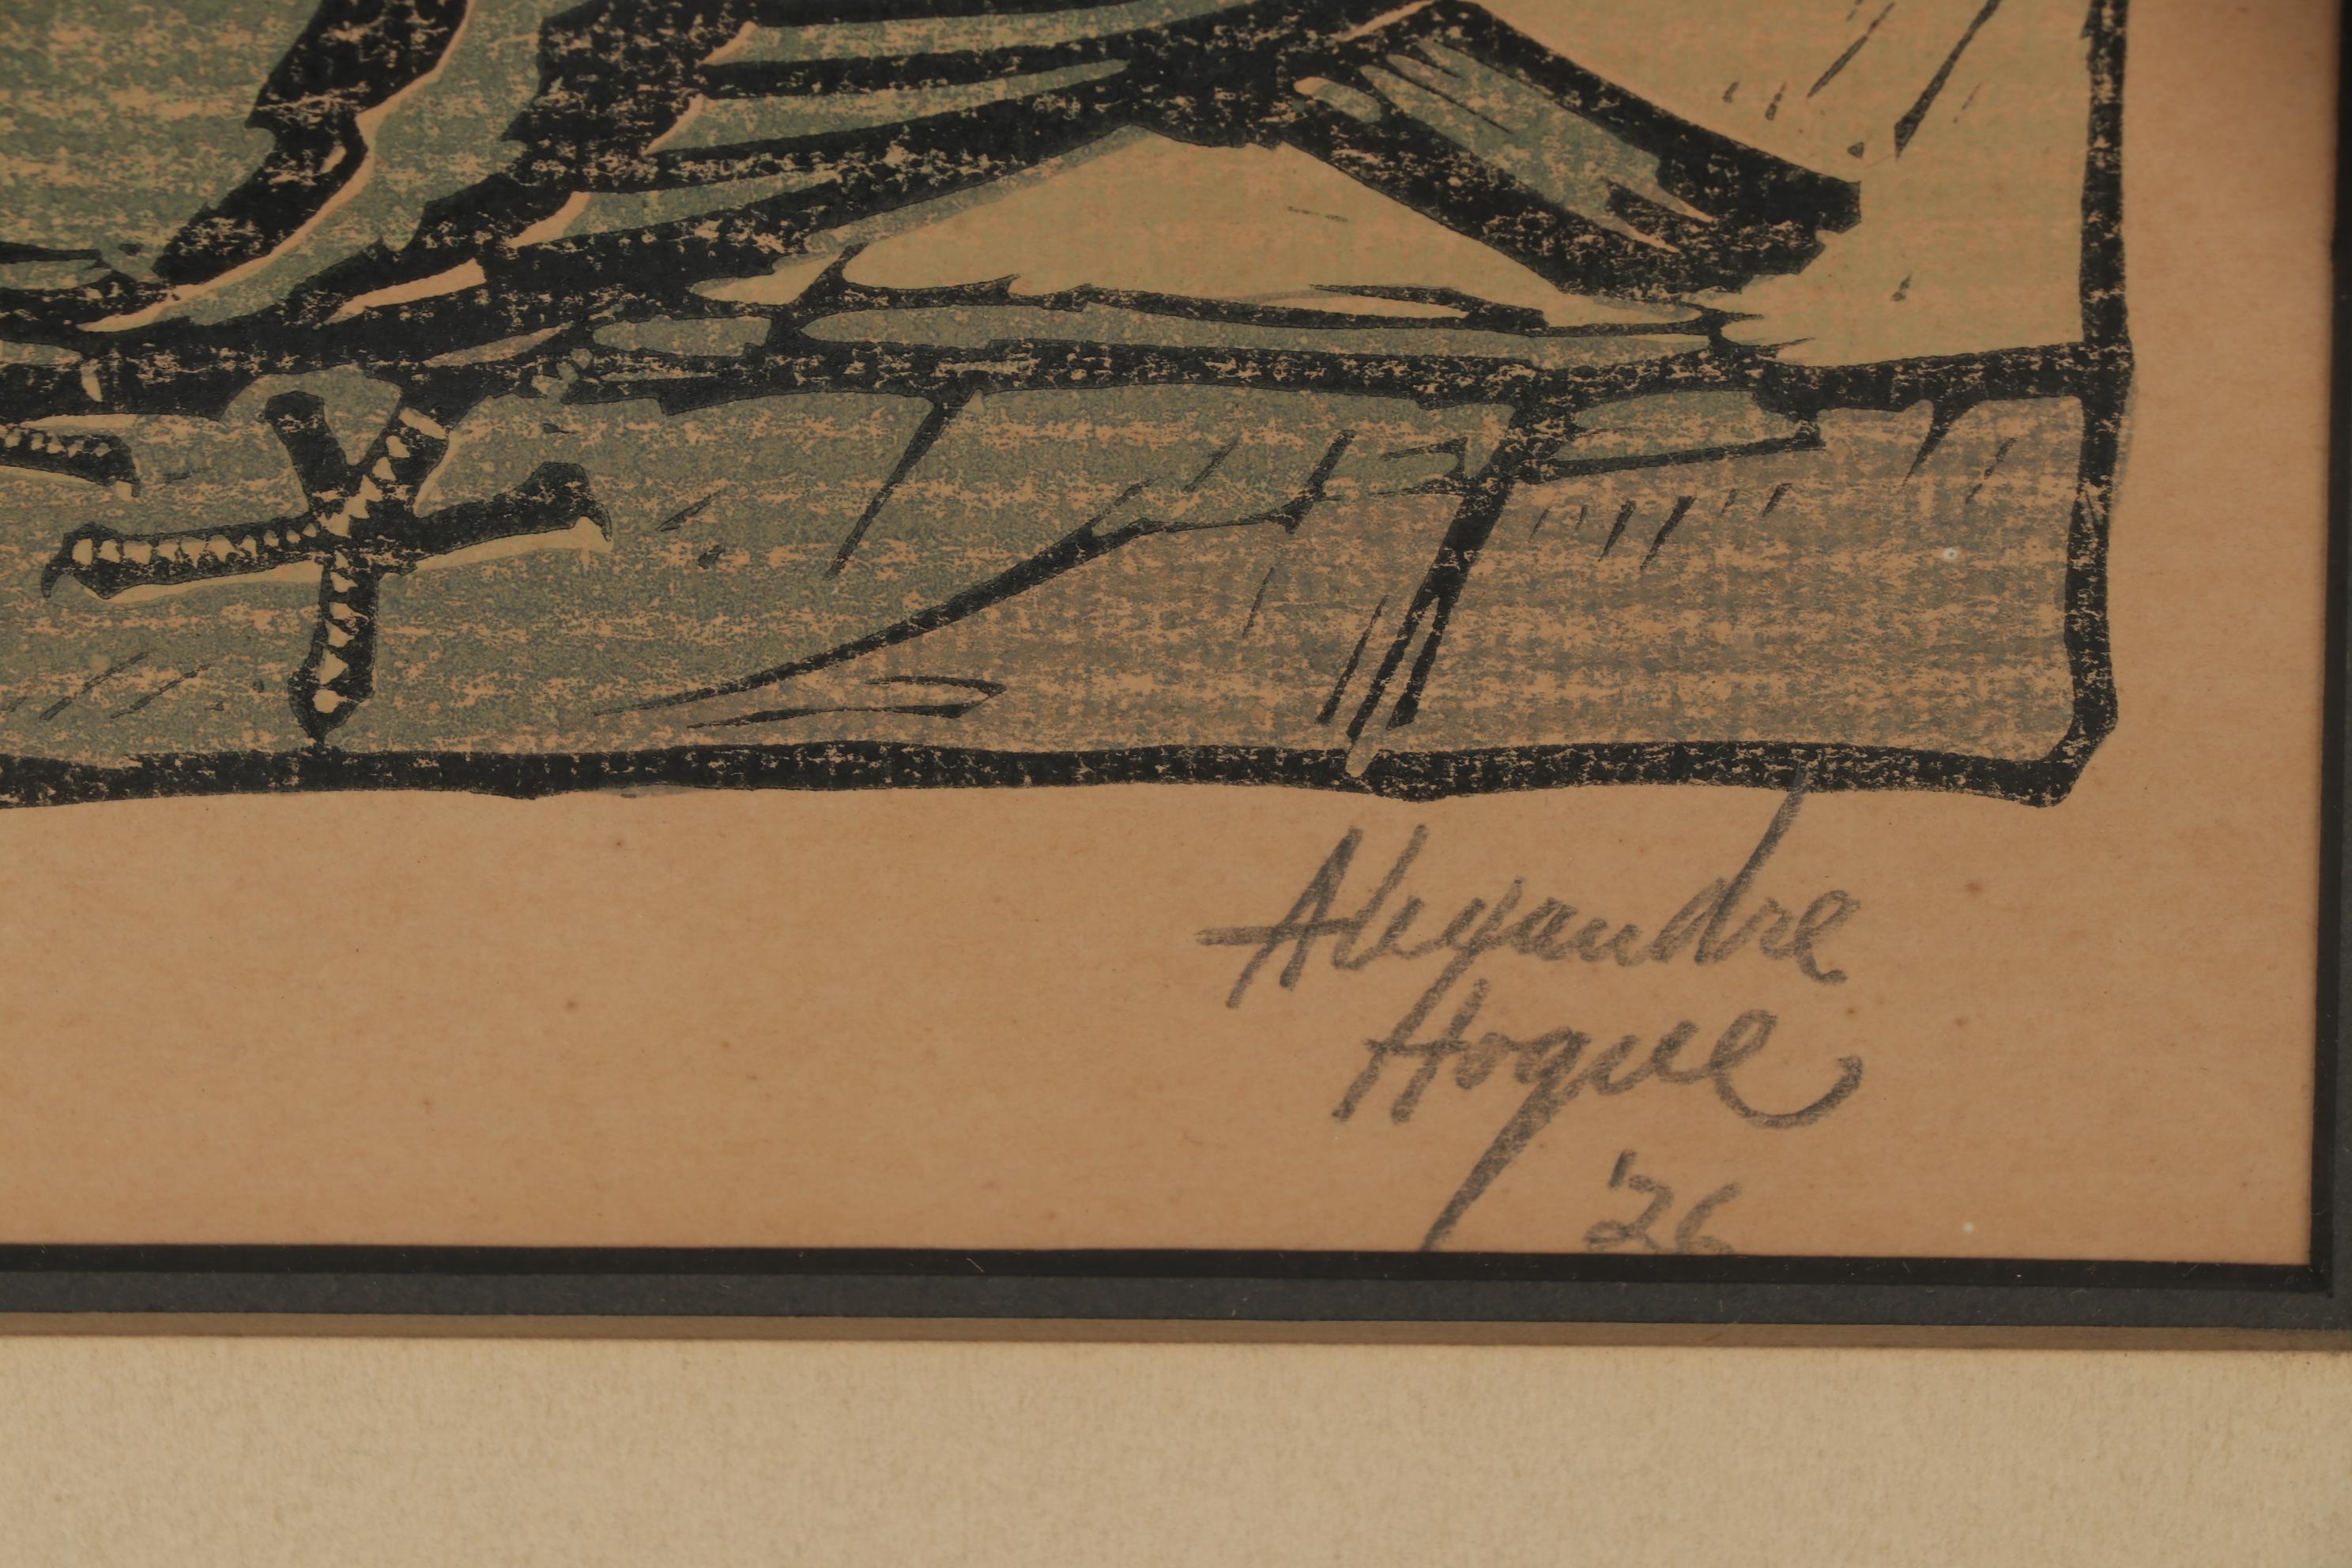 Alexandre
Hogue
'26